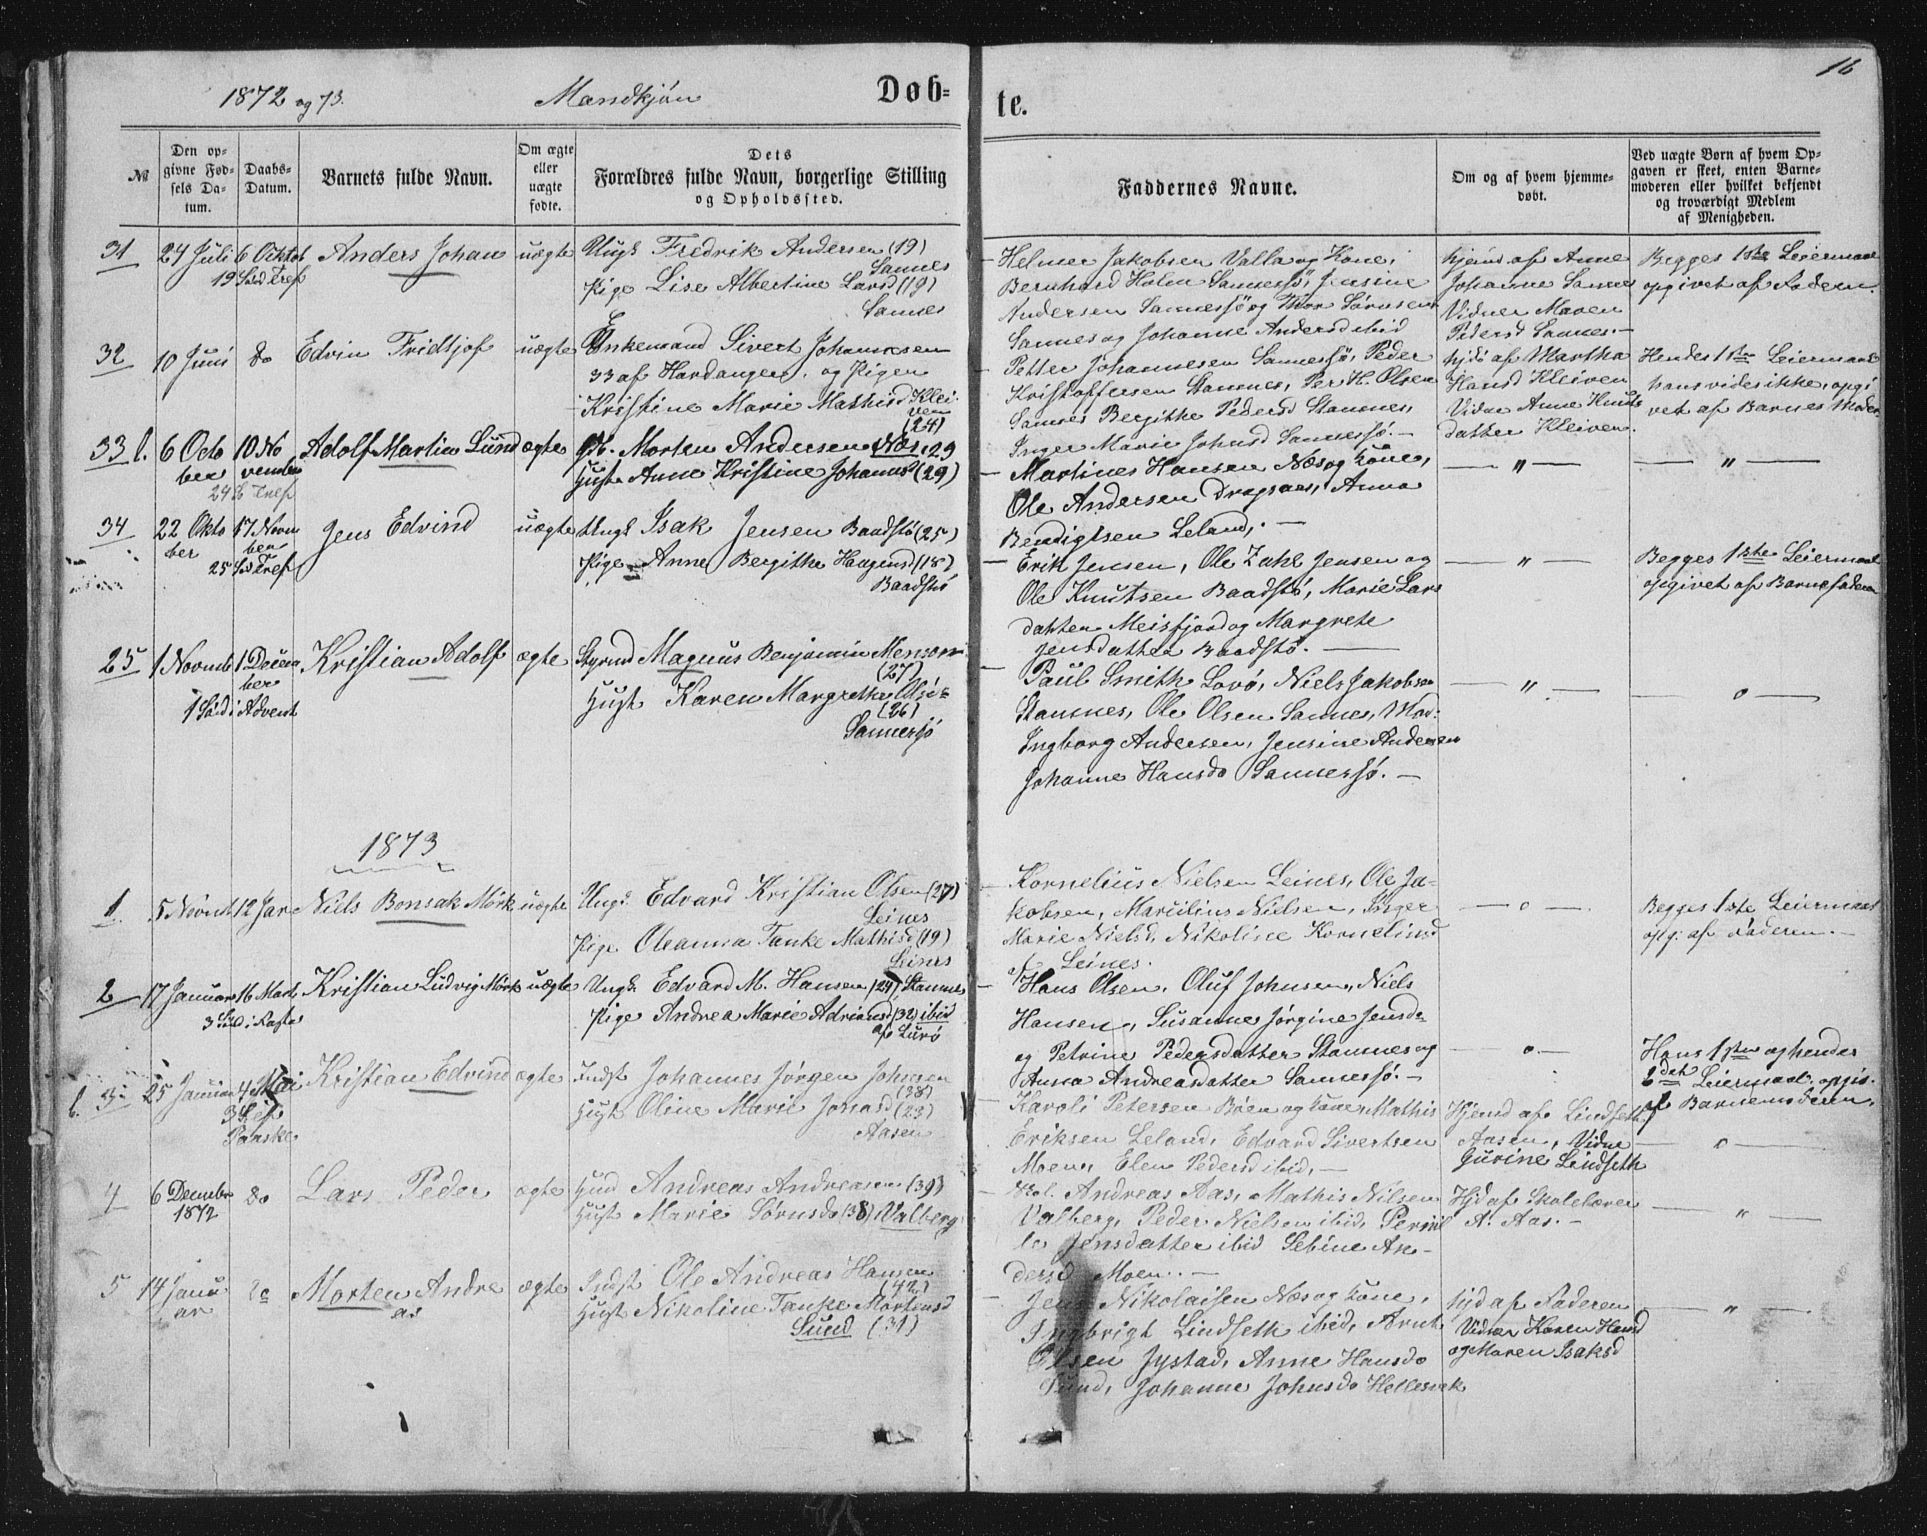 16
1872 og 73. Mandkjön Døb-
te.
№
Den op-
givne Fød-
sels Da-
tum.
Daabs-
Datum.
Barnets fulde Navn.
Om ægte
eller
uægte
fødte.
Dets
Forældres fulde Navn, borgerlige Stilling
og Opholdssted.
Faddernes Navne.
Om og af hvem hjemme-
døbt.
Ved uægte Børn af hvem Op-
gaven er skeet, enten Barne-
moderen eller hvilket bekjendt
og troværdigt Medlem
af Menigheden.
31 24 Juli 6 Oktob Anders Johan uægte Ungk Fredrik Andersen (19)
19 Sød Tref Sannes
Pige Lise Albertine Larsd (19)
Sannes
Helmer Jakobsen Valla og Kone,
Bernhard Holm Sannessö, Jensine
Andersen Sannessö og Thor Sörensen
Sannes og Johanne Andersd ibid
hjemd af Anne
Johanne Sannes
Vidner Maren
Pedersd Sannes.—
Begges 1ste Leiermaal
opgivet af Faderen.
32 10 Juni do Edvin Fridtjof uægte Enkemand Sivert Johannesen
33 af Hardanger. og Pigen
Kristine Marie Mathisd Klei
ven
(24)
Petter Johannesen Sannessö, Peder
Kristoffersen Stamnes, Per H. Olsen
Sannes Bergithe Pedersd Stamnes,
Inger Marie Johnsd Sannessö.—
hjd af Martha
Hansd Kleiven
Vidne Anne Knuts
datter Kleiven.
Hendes 1ste Leiermaal
hans vides ikke, opgi
vet af Barnes Moder
33 l. 6 Octo 10 No Adolf Martin Lund ægte Gb. Morten Andersen Næs, 29
ber vember
24 S Tref
Hust Anne Kristine Johannsd (29)
Martines Hansen Næs og Kone,
Ole Andersen Dragsnes, Anna
Bendigtsen Leland,.—
— " —
— " —
34 22 Okto 17 Novm Jens Edvind uægte Ungk Isak Jensen Baadstö (25)
ber ber
25 Sd Tref
Pige Anne Bergithe Haagensd (18)
Baadstö
Erik Jensen, Ole Zahl Jensen og
Ole Knutsen Baadstö, Marie Lars
datter Meisfjord og Margrete
Jensdatter Baadstö.—
— " —
Begges 1ste Leiermaal
opgivet af Barnefaderen
25 1 Novmb 1. Decem Kristian Adolf ægte Styrmd Magnus Benjamin Menson
ber (27)
1 Sød i Advent
Hust Karen Margrethe
(26)
Sannessjö
Paul Smith Lovö, Niels Jakobsen
Stamnes, Ole Olsen Sannes, Mad:
Ingborg Andersen, Jensine Andersen
Johanne Hansda Sannessö.—
— " —
— o —
1873
1. 5 Novmb 12 Jan Niels Bonsak Mörk uægte Ungk. Edvard Kristian Olsen (27)
Leines
Pige Oleanna Tanke Mathisd (19)
Leines
Kornelius Nielsen Leines, Ole Ja-
kobsen, Marcelius Nielsen, Inger
Marie Nielsd, Nikoline Korneliusd
af Leines.
— o —
Begges 1ste Leiermaal
opg: af Faderen.—
2 17 Januar 16 Marts Kristian Ludvig Mörk uægte Ungk. Edvard M. Hansen (24) Stamnes
3 Sød i Faste
Pige Andrea Marie Adriansd (32) ibid
af Lurö
Hans Olsen, Oluf Johnsen, Niels
Hansen, Susanne Jörgine Jensda
og Petrine Pedersdatter Stamnes og
Anna Andreasdatter Sannessö.—
— o —
Hans 1ste og hendes
2det Leiermaal. opgiv.
af Barnemoderen,
l. 3. 25 Januar 4 Mai Kristian Edvind ægte Indst Johannes Jörgen Johnsen
3 S ef (38)
Paaske
Hust Oline Marie Jonasd (23)
Aasen
Karoli Petersen Böen og Kone, Mathis
Eriksen Leland, Edvard Sivertsen
Moen, Elen Pedersd ibid.—
Hjemd af Lindseth
Aasen, Vidne
Gurine Lindseth
— o —
4 6 Decmbr do Lars Peder ægte Husd Andreas Andreasen (39)
1872
Hust Marie Sörnsda (38) Valberg
Skol. Andreas Aas, Mathis Nilsen
Valberg, Peder Nielsen ibid, Pernil
le Jensdatter ibid Sebine An-
dersd Moen.—
Hjd af Skolelærer
A. Aas.—
— " —
5 14 Janu do Morten Andre ægte Indst Ole Andreas Hansen
ar as (42)
Hust Nikoline Tanke Mortensd
Sund (31)
Jens Nikolaisen Næs og Kone,
Ingbrigt Lindseth ibid, Arnt
Olsen Jystad, Anne Hansda
Sund, Johanne Johnsda Hellesvik
Hjd af Faderen
Vidner Karen Hansd
og Maren Isaksd
— " —